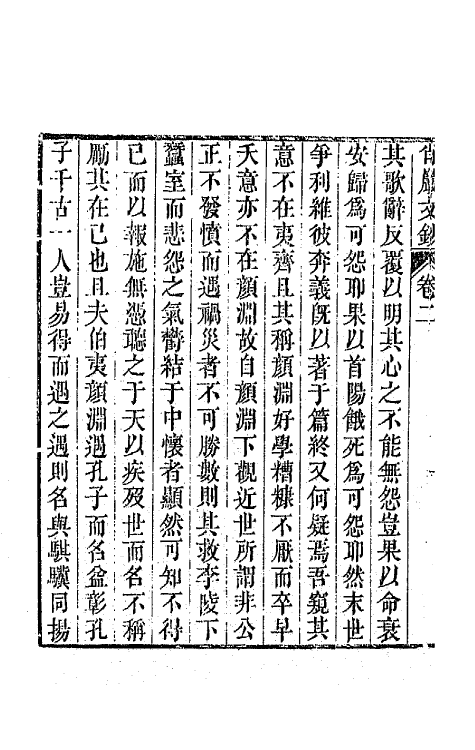 文鈔 卷二
其歌辭反覆以明其心之不能無怨豈果以命衰
安歸爲可怨耶果以首陽餓死爲可怨耶然末世
爭利維彼奔義旣以著于篇終又何疑焉吾窺其
意不在夷齊且其稱顏淵好學糟糠不厭而卒早
夭意亦不在顏淵故自顏淵下觀近世所謂非公
正不發憤而遇禍災者不可勝數則其救李陵下
蠶室而悲怨之氣鬱結于中懷者顯然可知不得
已而以報施無憑聽之于天以疾歿世而名不稱
勵其在已也且夫伯夷顏淵遇孔子而名益彰孔
子千古一人豈易得而遇之遇則名與騏驥同揚